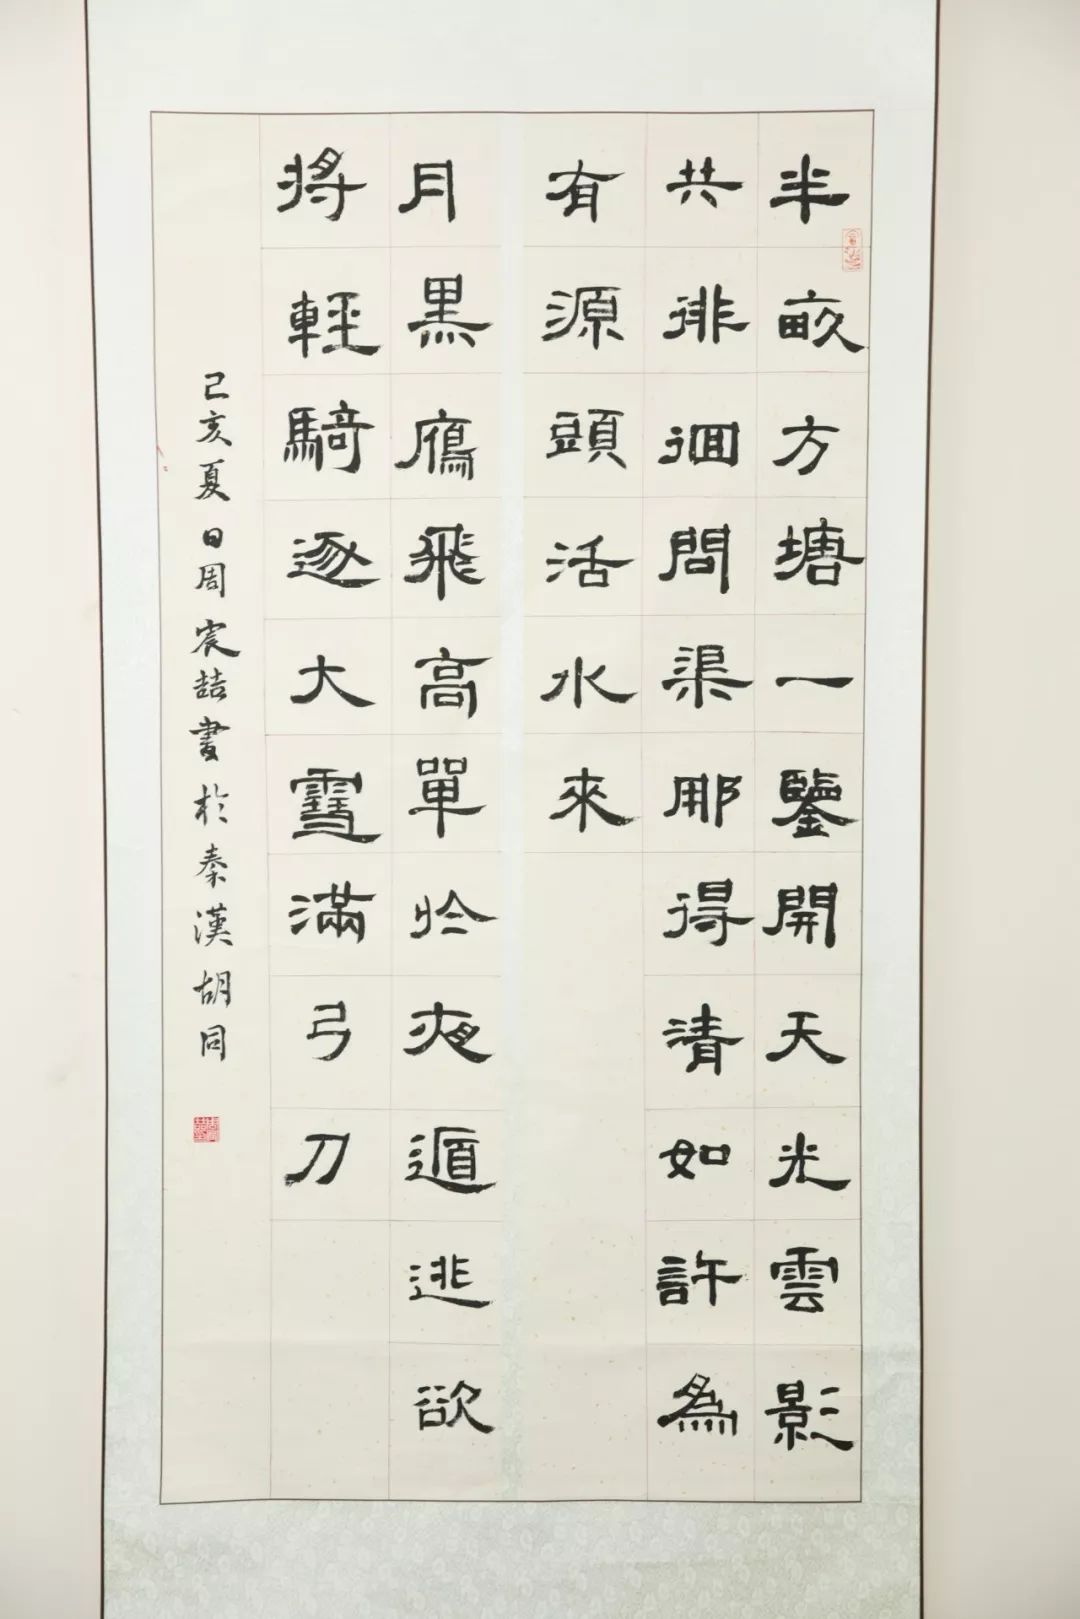 半畝方塘一鑒開天光雲影
共徘徊問渠那得清如許為
有源頭活水來
月黑鴈飛高單於夜遁逃欲
將輕騎逐大雪滿弓刀
己亥夏日周宸喆書於秦漢胡同